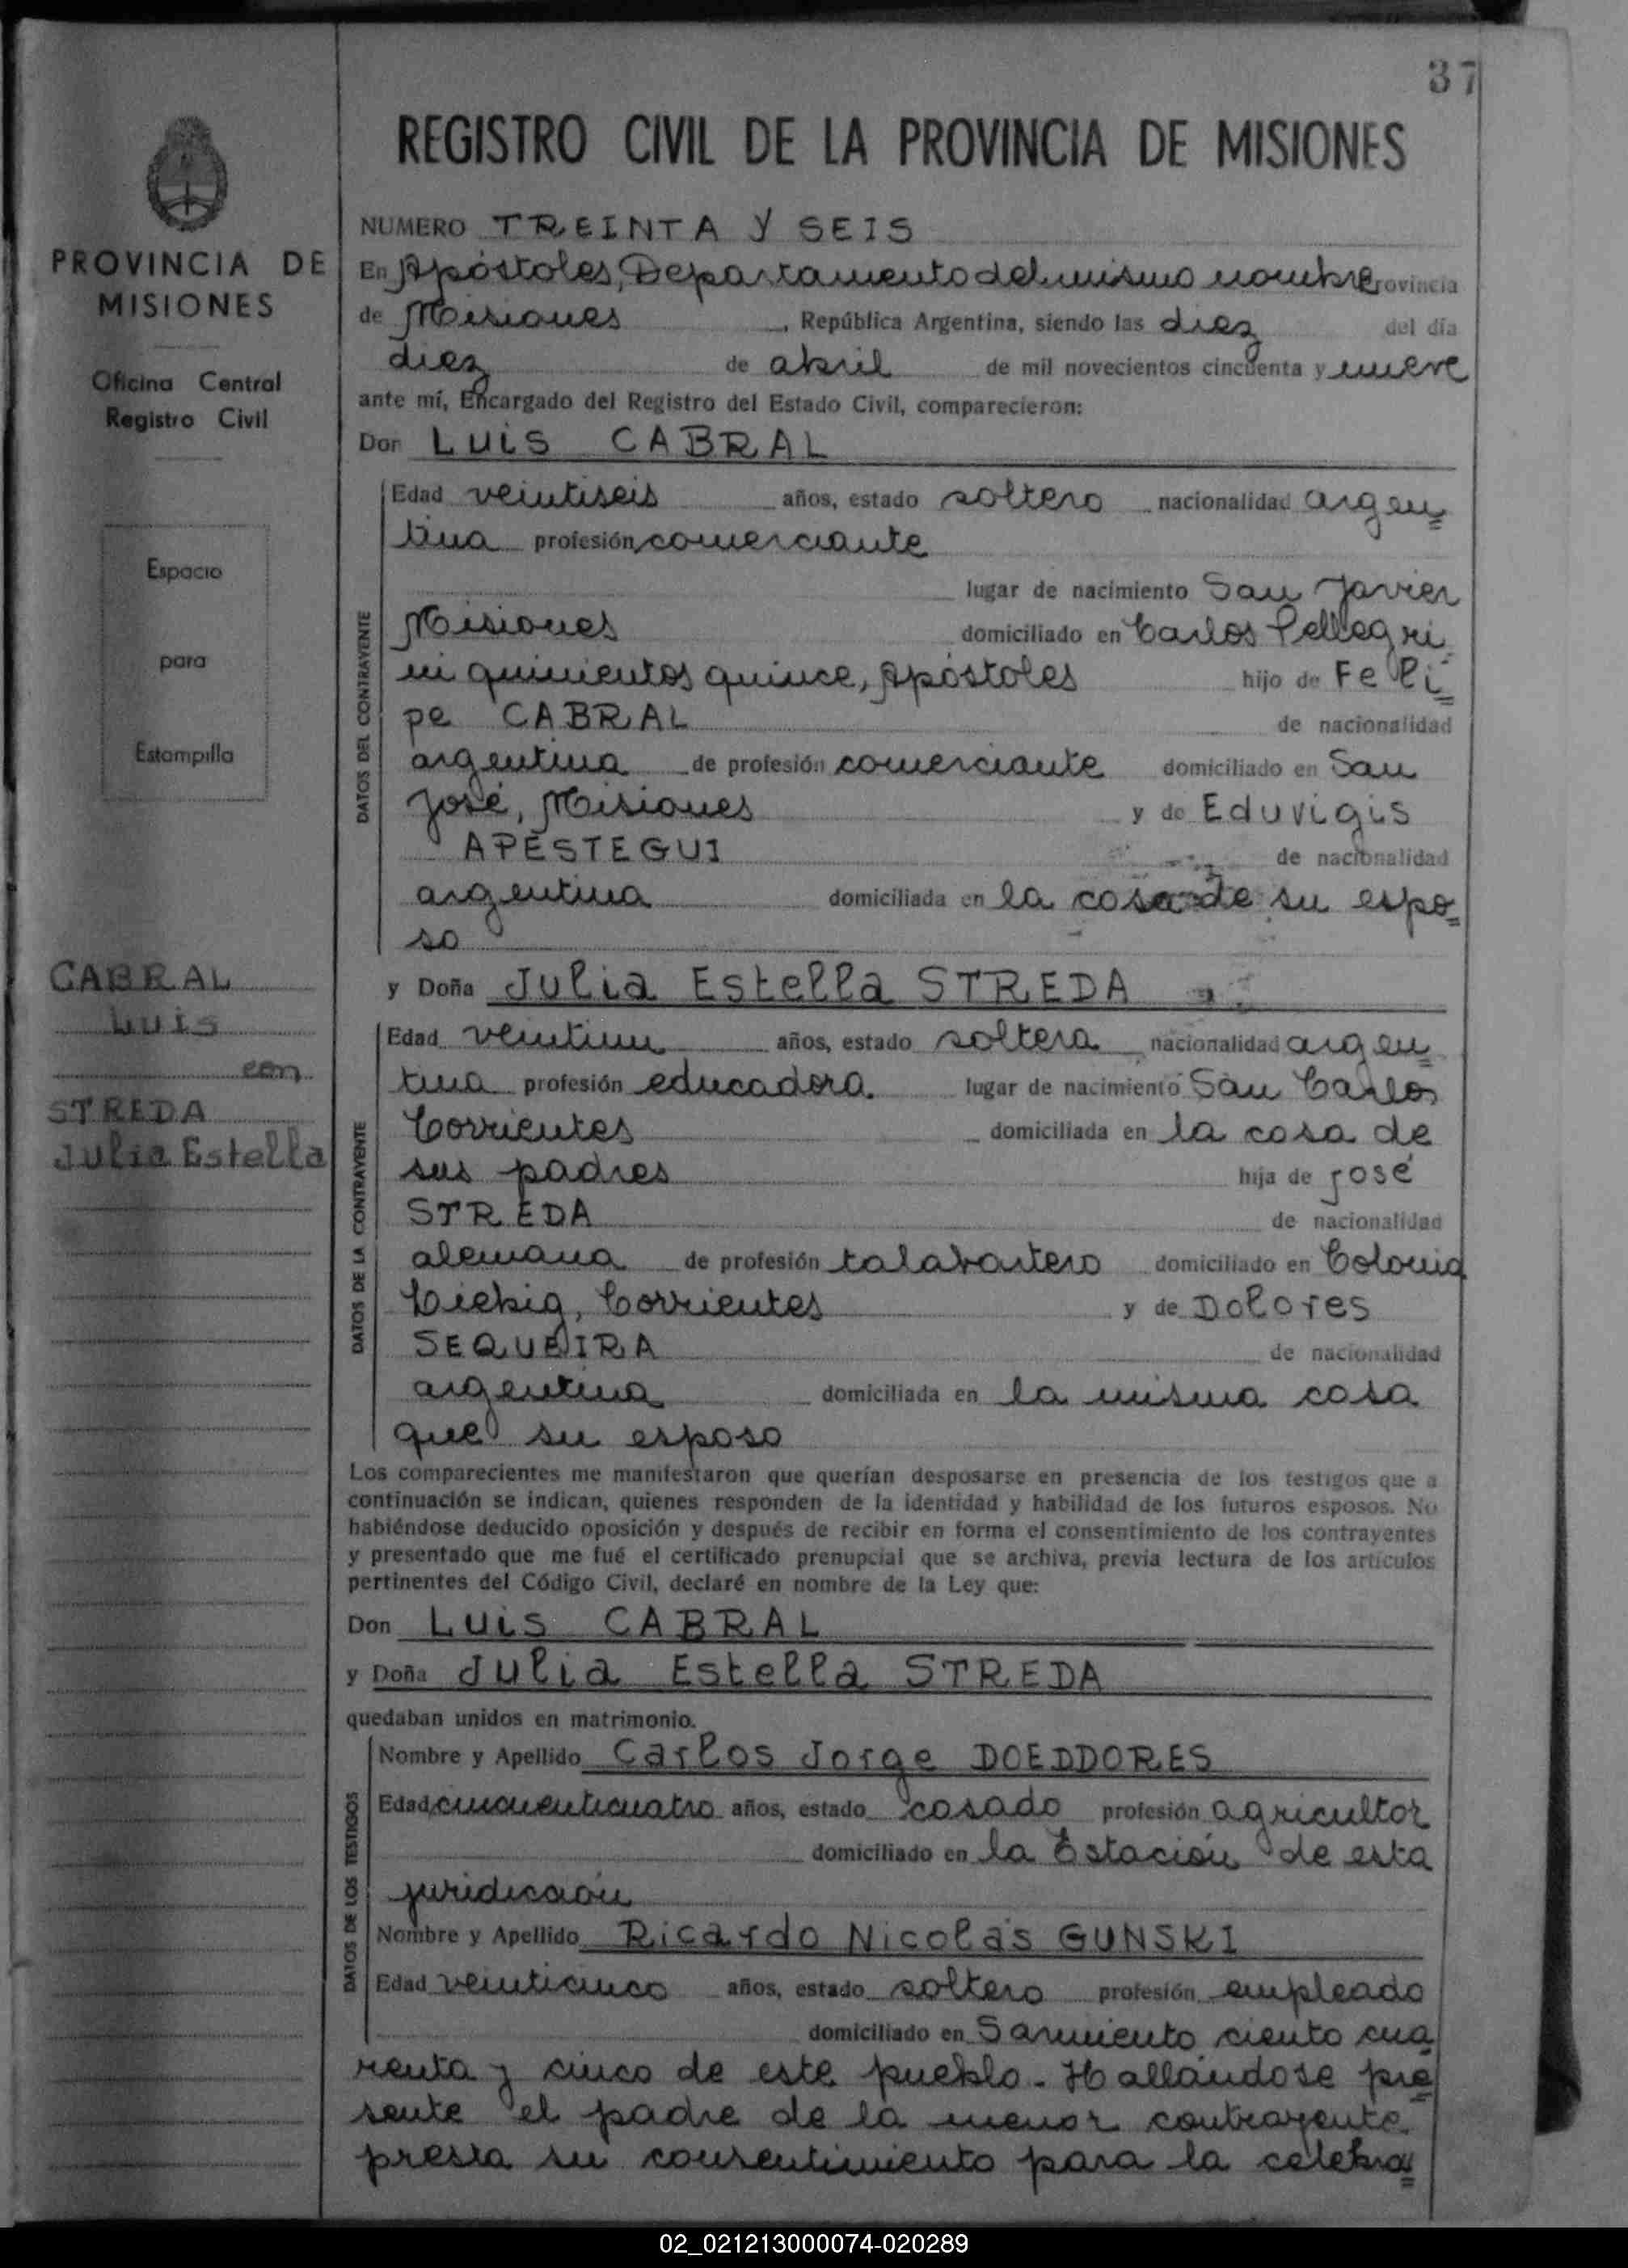 37
REGISTRO CIVIL DE LA PROVINCIA DE MISIONES
PROVINCIA DE
MISIONES
Oficina Central
Registro Civil
Espacio
para
Estampilla
CABRAL
Luis
con
STREDA
Julia Estella
NUMERO TREINTA Y SEIS
En Apóstoles, Departamento del mismo nombre Provincia
de Misiones, República Argentina, siendo las diez del día
diez de abril de mil novecientos cincuenta y nueve
ante mí, Encargado del Registro del Estado Civil, comparecieron:
Don LUIS CABRAL
DATOS DEL CONTRAYENTE
Edad veintiseis años, estado soltero nacionalidad argen=
tina profesión comerciante
lugar de nacimiento San Javier
Misiones domiciliado en Carlos Pellegri
ni quinientos quince, Apóstoles hijo de Feli=
pe CABRAL de nacionalidad
argentina de profesión comerciante domiciliado en San
José, Misiones y de Eduvigis
APESTEGUI de nacionalidad
argentina domiciliada en la casa de su espo=
so
y Doña Julia Estella STREDA
DATOS DE LA CONTRAYENTE
Edad veintiun años, estado soltera nacionalidad argen=
tina profesión educadora. lugar de nacimiento San Carlos
Corrientes domiciliada en la casa de
sus padres hija de José
STREDA de nacionalidad
alemana de profesión talabartero domiciliado en Colonia
Liebig, Corrientes y de Dolores
SEQUEIRA de nacionalidad
argentina domiciliada en la misma casa
que su esposo
Los comparecientes me manifestaron que querían desposarse en presencia de los testigos que a
continuación se indican, quienes responden de la identidad y habilidad de los futuros esposos. No
habiéndose deducido oposición y después de recibir en forma el consentimiento de los contrayentes
y presentado que me fué el certificado prenupcial que se archiva, previa lectura de los artículos
pertinentes del Código Civil, declaré en nombre de la Ley que:
Don LUIS CABRAL
y Doña Julia Estella STREDA
quedaban unidos en matrimonio.
DATOS DE LOS TESTIGOS
Nombre y Apellido Carlos Jorge DOEDDORES
Edad cincuenticuatro años, estado casado profesión agricultor
domiciliado en la Estación de esta
juridicción
Nombre y Apellido Ricardo Nicolás GUNSKI
Edad veinticinco años, estado soltero profesión empleado
domiciliado en Sarmiento ciento cua
renta y cinco de este pueblo. Hallándose pre=
sente el padre de la menor contrayente
presta su consentimiento para la celebra=
02_021213000074-020289